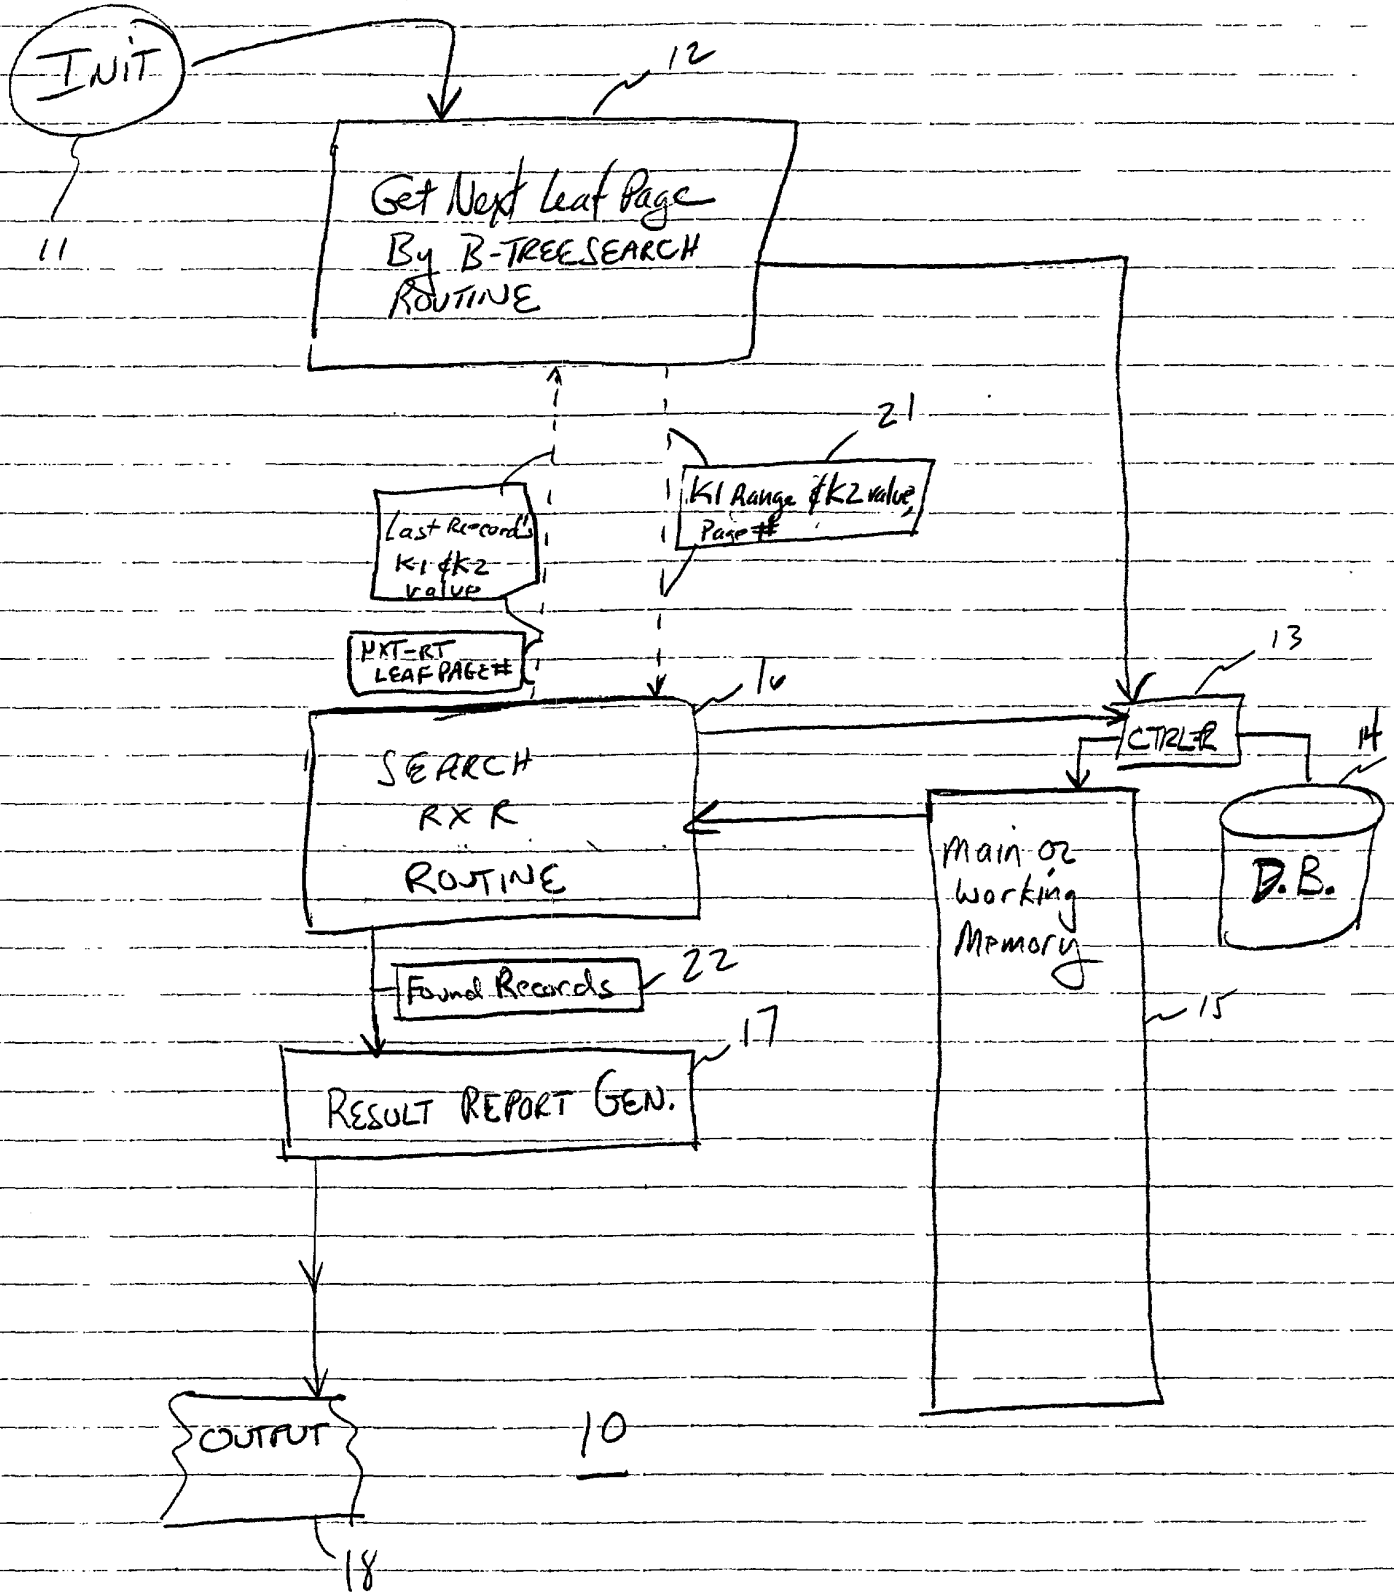 INIT
12
11
Get Next Leaf Page
By B-TREE SEARCH
ROUTINE
21
K1 Range & K2 value,
Page #
Last Record's
K1 & K2
value
NXT-RT
LEAF PAGE #
13
16
14
CTRLR
SEARCH
RXR
ROUTINE
D.B.
Main or
Working
Memory
Found Records
22
15
17
RESULT REPORT GEN.
OUTPUT
10
18